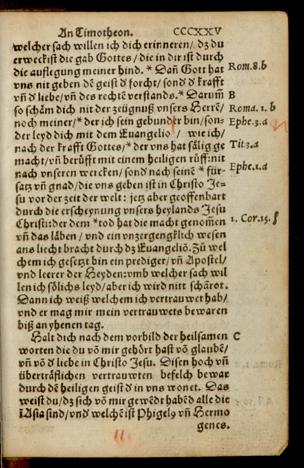 An Timotheon. CCCXXV
welcher sach willen ich dich erinneren/ dz du
erweckist die gab Gottes/ die in dir ist durch
die auflegung meiner hind. * Dañ Gott hat Rom. 8. b
vns nit geben dē geist d̕ forcht/ sonđ đ krafft
vñ đ liebe/ vñ des rechtē verstands. * Darum̄ B
so schäm dich nit der zeügnuß vnsers Herrē/ Roma. 1. b
noch meiner/ * der ich sein gebunder bin/ son= Ephe. 3. a
der leyd dich mit dem Euangelio/ wie ich/
nach der krafft Gottes/ * der vns hat sälig ge Tit. 3. a
macht/ vñ berüfft mit einem heiligen rüff: nit
nach vnseren wercken/ sond̕ nach seinē * für= Ephe. 1. a
satz vñ gnad/ die vns geben ist in Christo Je=
su vor der zeit der welt: jetz aber geoffenbart
durch die erscheynung vnsers heylands Jesu
Christi: der dem * tod hat die macht genom̄en 1. Cor. 15. f
vñ das läben/ vnd ein vnzergengklich wesen
ans liecht bracht durch dz Euangeliō. Zů wel
chem ich gesetzt bin ein prediger/ vñ Apostel/
vnd leerer der Heyden: vmb welcher sach wil
len ich sölichs leyd/ aber ich wird nitt schārot.
Dann ich weiß welchem ich vertrauwet hab/
vnd er mag mir mein vertrauwets bewaren
biß an yhenen tag.
Halt dich nach dem vorbild der heilsamen C
worten die du vō mir gehört hast vō glaubē/
vñ vō đ liebe in Christo Jesu. Disen hoch vñ
überträflichen vertrauwten befelch bewar
durch dē heiligen geist đ in vns wonet. Das
weist du/ dz sich vō mir gewēdt habēd alle die
in Asia sind/ vnđ welchē ist Phigelꝰ vñ Hermo
genes.